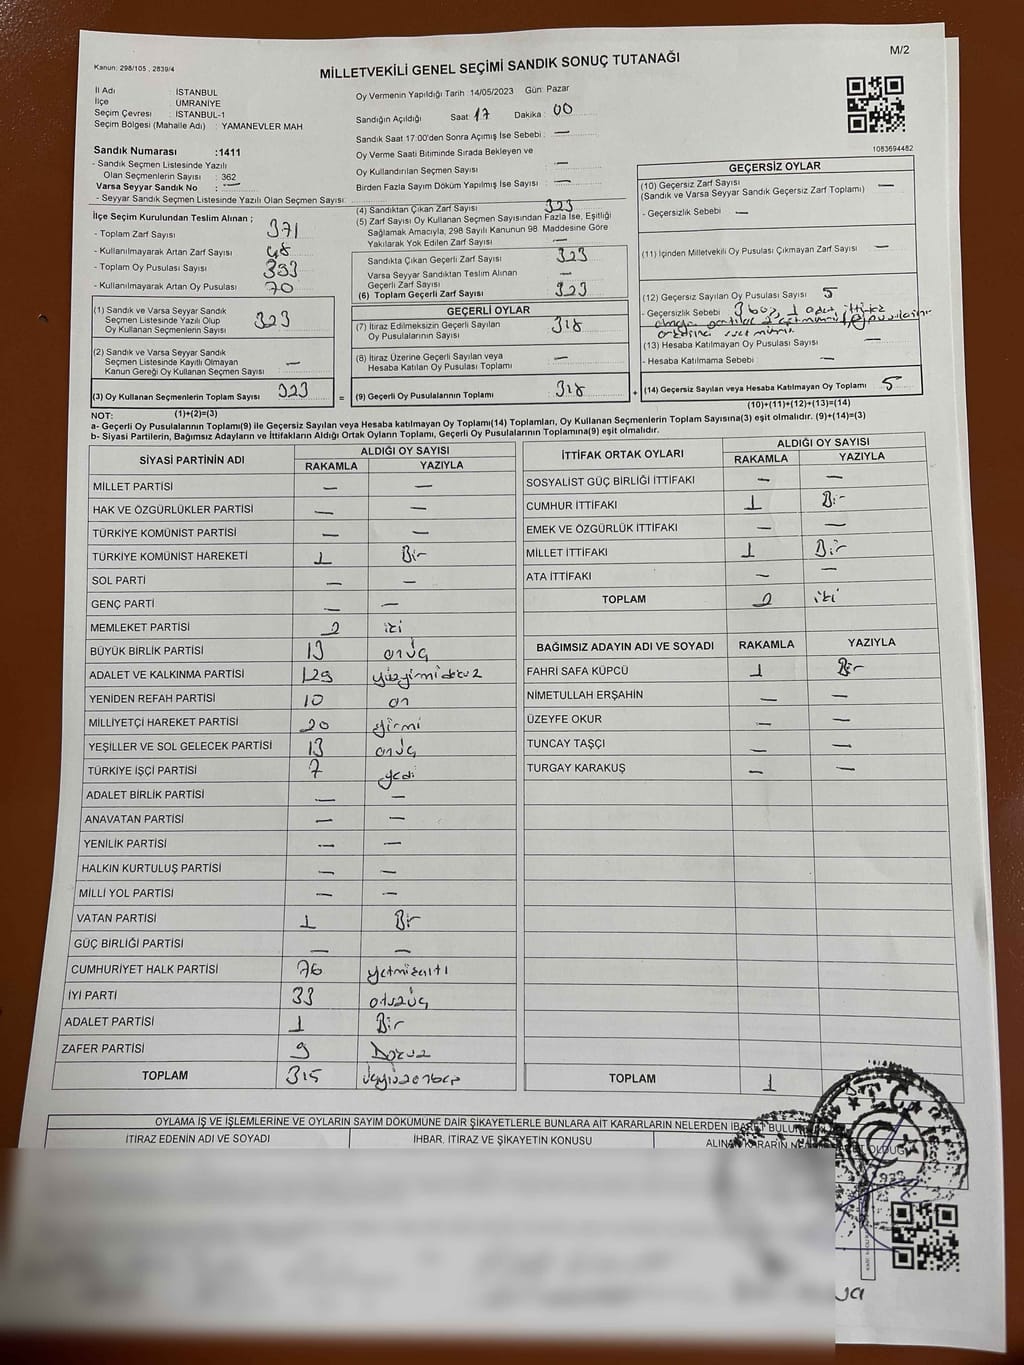 M/2
Kanun: 298/105 , 2839/4
MİLLETVEKİLİ GENEL SEÇİMİ SANDIK SONUÇ TUTANAĞI
İl Adı : İSTANBUL
İlçe : ÜMRANİYE
Seçim Çevresi : İSTANBUL-1
Seçim Bölgesi (Mahalle Adı) : YAMANEVLER MAH
Sandık Numarası :1411
- Sandık Seçmen Listesinde Yazılı
Olan Seçmenlerin Sayısı : 362
Varsa Seyyar Sandık No : —
- Seyyar Sandık Seçmen Listesinde Yazılı Olan Seçmen Sayısı:
Oy Vermenin Yapıldığı Tarih :14/05/2023 Gün: Pazar
Sandığın Açıldığı Saat: 17 Dakika : 00
Sandık Saat 17:00'den Sonra Açmış İse Sebebi : —
Oy Verme Saati Bitiminde Sırada Bekleyen ve
Oy Kullandırılan Seçmen Sayısı : —
Birden Fazla Sayım Döküm Yapılmış İse Sayısı : —
1083694482
İlçe Seçim Kurulundan Teslim Alınan ;
- Toplam Zarf Sayısı 371
- Kullanılmayarak Artan Zarf Sayısı 48
- Toplam Oy Pusulası Sayısı 393
- Kullanılmayarak Artan Oy Pusulası 70
(1) Sandık ve Varsa Seyyar Sandık
Seçmen Listesinde Yazılı Olup
Oy Kullanan Seçmenlerin Sayısı 323
(2) Sandık ve Varsa Seyyar Sandık
Seçmen Listesinde Kayıtlı Olmayan
Kanun Gereği Oy Kullanan Seçmen Sayısı —
(3) Oy Kullanan Seçmenlerin Toplam Sayısı 323
(1)+(2)=(3)
(4) Sandıktan Çıkan Zarf Sayısı 323
(5) Zarf Sayısı Oy Kullanan Seçmen Sayısından Fazla İse, Eşitliği
Sağlamak Amacıyla, 298 Sayılı Kanunun 98. Maddesine Göre
Yakılarak Yok Edilen Zarf Sayısı —
Sandıkta Çıkan Geçerli Zarf Sayısı 323
Varsa Seyyar Sandıktan Teslim Alınan
Geçerli Zarf Sayısı —
(6) Toplam Geçerli Zarf Sayısı 323
GEÇERLİ OYLAR
(7) İtiraz Edilmeksizin Geçerli Sayılan
Oy Pusulalarının Sayısı 318
(8) İtiraz Üzerine Geçerli Sayılan veya
Hesaba Katılan Oy Pusulası Toplamı —
= (9) Geçerli Oy Pusulalarının Toplamı 318
GEÇERSİZ OYLAR
(10) Geçersiz Zarf Sayısı —
(Sandık ve Varsa Seyyar Sandık Geçersiz Zarf Toplamı)
- Geçersizlik Sebebi —
(11) İçinden Milletvekili Oy Pusulası Çıkmayan Zarf Sayısı —
(12) Geçersiz Sayılan Oy Pusulası Sayısı 5
- Geçersizlik Sebebi 3 boş, 1 adet
(13) Hesaba Katılmayan Oy Pusulası Sayısı —
- Hesaba Katılmama Sebebi —
+ (14) Geçersiz Sayılan veya Hesaba Katılmayan Oy Toplamı 5
(10)+(11)+(12)+(13)=(14)
NOT:
a- Geçerli Oy Pusulalarının Toplamı(9) ile Geçersiz Sayılan veya Hesaba katılmayan Oy Toplamı(14) Toplamları, Oy Kullanan Seçmenlerin Toplam Sayısına(3) eşit olmalıdır. (9)+(14)=(3)
b- Siyasi Partilerin, Bağımsız Adayların ve İttifakların Aldığı Ortak Oyların Toplamı, Geçerli Oy Pusulalarının Toplamına(9) eşit olmalıdır.
SİYASİ PARTİNİN ADI ALDIĞI OY SAYISI
RAKAMLA YAZIYLA
MİLLET PARTİSİ — —
HAK VE ÖZGÜRLÜKLER PARTİSİ — —
TÜRKİYE KOMÜNİST PARTİSİ — —
TÜRKİYE KOMÜNİST HAREKETİ 1 Bir
SOL PARTİ — —
GENÇ PARTİ — —
MEMLEKET PARTİSİ 2 iki
BÜYÜK BİRLİK PARTİSİ 13 onüç
ADALET VE KALKINMA PARTİSİ 129 yüzyirmidokuz
YENİDEN REFAH PARTİSİ 10 on
MİLLİYETÇİ HAREKET PARTİSİ 20 yirmi
YEŞİLLER VE SOL GELECEK PARTİSİ 13 onüç
TÜRKİYE İŞÇİ PARTİSİ 7 yedi
ADALET BİRLİK PARTİSİ — —
ANAVATAN PARTİSİ — —
YENİLİK PARTİSİ — —
HALKIN KURTULUŞ PARTİSİ — —
MİLLİ YOL PARTİSİ — —
VATAN PARTİSİ 1 Bir
GÜÇ BİRLİĞİ PARTİSİ — —
CUMHURİYET HALK PARTİSİ 76 yetmişaltı
İYİ PARTİ 33 otuzüç
ADALET PARTİSİ 1 Bir
ZAFER PARTİSİ 9 Dokuz
TOPLAM 315 üçyüzonbeş
İTTİFAK ORTAK OYLARI ALDIĞI OY SAYISI
RAKAMLA YAZIYLA
SOSYALİST GÜÇ BİRLİĞİ İTTİFAKI — —
CUMHUR İTTİFAKI 1 Bir
EMEK VE ÖZGÜRLÜK İTTİFAKI — —
MİLLET İTTİFAKI 1 Bir
ATA İTTİFAKI — —
TOPLAM 2 iki
BAĞIMSIZ ADAYIN ADI VE SOYADI RAKAMLA YAZIYLA
FAHRİ SAFA KÜPCÜ 1 Bir
NİMETULLAH ERŞAHİN — —
ÜZEYFE OKUR — —
TUNCAY TAŞÇI — —
TURGAY KARAKUŞ — —
TOPLAM 1
OYLAMA İŞ VE İŞLEMLERİNE VE OYLARIN SAYIM DÖKÜMÜNE DAİR ŞİKAYETLERLE BUNLARA AİT KARARLARIN NELERDEN İBARET BULUNDUĞU
İTİRAZ EDENİN ADI VE SOYADI İHBAR, İTİRAZ VE ŞİKAYETİN KONUSU ALINAN KARARIN NEDEN İBARET OLDUĞU